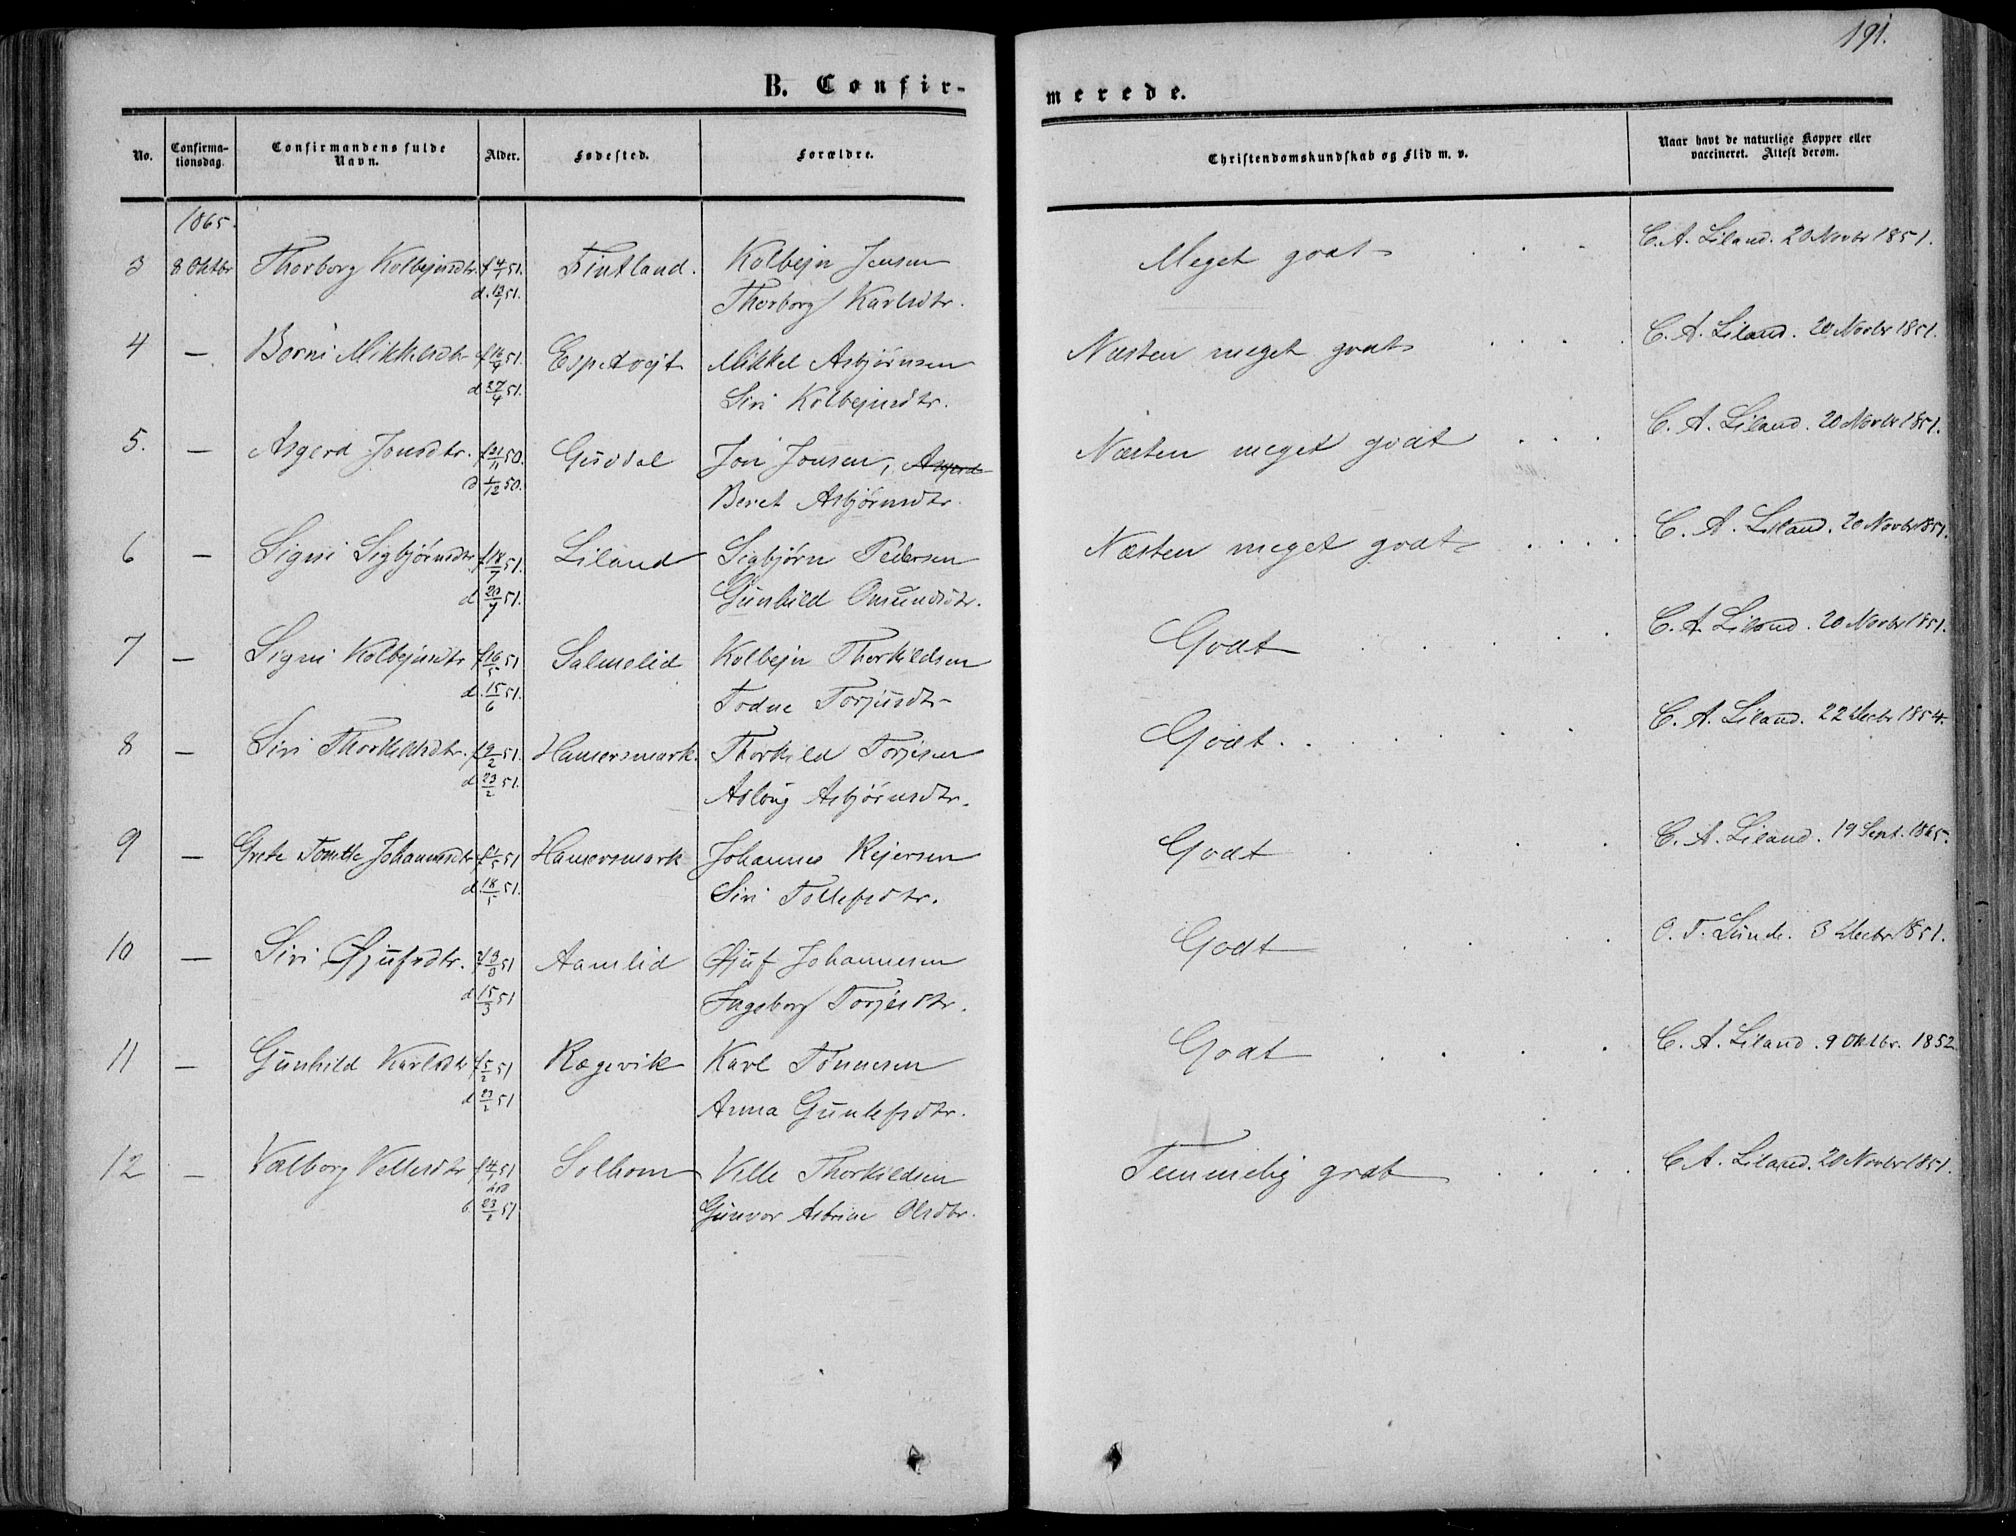 191.
B. Confir-
merede.
No. Confirma-tionsdag. Confirmandens fulde Navn. Alder. Fødested. Forældre. Christendomskundskab og Flid m. v. Naar havt de naturlige Kopper eller vaccineret. Attest derom.
1865.
3 8 Oktbr Thorborg Kolbejnsdtr. f 4/1 51. Fintland. Kolbejn Jensen Meget godt C. A. Liland. 20 Novbr 1851.
d. 12/1 51. Thorborg Karlsdtr.
4 — Borni Mikkelsdtr f 16/4 51. Espetvejt Mikkel Asbjørnsen Næsten meget godt C. A. Liland. 20 Novbr 1851.
d 27/4 51. Siri Kolbejnsdtr.
5. — Asgerd Jonsdtr. f 21/11 50. Gusdal Jon Jonsen, Asgerd Næsten meget godt C. A. Liland. 20 Novbr 1851.
d 1/12 50. Beret Asbjørnsdtr.
6 — Signi Sigbjørnsdtr f 18/7 51. Liland Sigbjørn Pedersen Næsten meget godt C. A. Liland. 20 Novbr 1851.
d 20/7 51. Gunhild Omundsdtr.
7 — Signi Kolbejnsdtr f 16/5 51 Salmelid Kolbejn Thorkildsen Godt C. A. Liland. 20 Novbr 1851.
d. 15/6 51. Todne Torjusdtr
8 — Siri Thorkildsdtr. f 9/2 51. Hamersmark. Thorkild Torjesen Godt. C. A. Liland. 22 Decbr 1854.
d 23/2 51. Aslaug Asbjørnsdtr.
9 — Grete Tomtte Johannesdtr 51 Hamersmark Johannes Rejersen Godt C. A. Liland. 19 Sept. 1865.
d. 18/5 51. Siri Tollefsdtr.
10 — Siri Øjufsdtr. f 3/3 51 Aamlid Øjuf Johannesen Godt O. T. Lunde. 3 Decbr 1851.
d 15/3 51 Ingeborg Torjesdtr.
11 — Gunhild Karlsdtr f 5/2 51 Rægevik Karl Tønnesen Godt C. A. Liland. 9 Oktbr. 1852
d 23/2 51 Anna Gunlefsdtr.
12 — Valborg Vellesdtr f 4/1 51 Solhom Ville Thorkildsen Temmelig godt C A. Liland. 20 Novbr 1851.
d 23/2 51 Gunvor Asbrine Olsdtr.